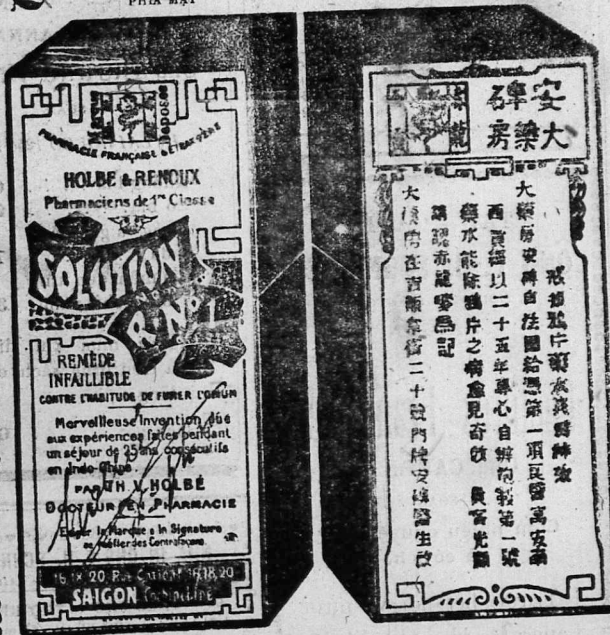 PHÍA MẶT
MARQUE
DÉPOSÉE
PHARMACIE FRANÇAISE & ÉTRANGÈRE
HOLBÉ & RENOUX
Pharmaciens de 1re Classe
SOLUTION
R. No 1
REMÈDE
INFAILLIBLE
CONTRE L'HABITUDE DE FUMER L'OPIUM
Merveilleuse Invention due
aux expériences faites pendant
un séjour de 25 ans consécutifs
en Indo-Chine
PAR TH. V. HOLBÉ
DOCTEUR EN PHARMACIE
Exiger la Marque & la Signature
se méfier des Contrefaçons
16, 18, 20, Rue Catinat, 16, 18, 20
SAIGON Cochinchine
安碑
大藥房
龍
戒鴉片藥水
大藥房安碑自法國給憑第一項良醫寓安南
西貢經以二十五年專心自辦泡製第一號
藥水能除鴉片之病愈見奇效 貴客光顧
請認赤龍麥為記
大藥房在 街二十號門牌安碑醫生啟